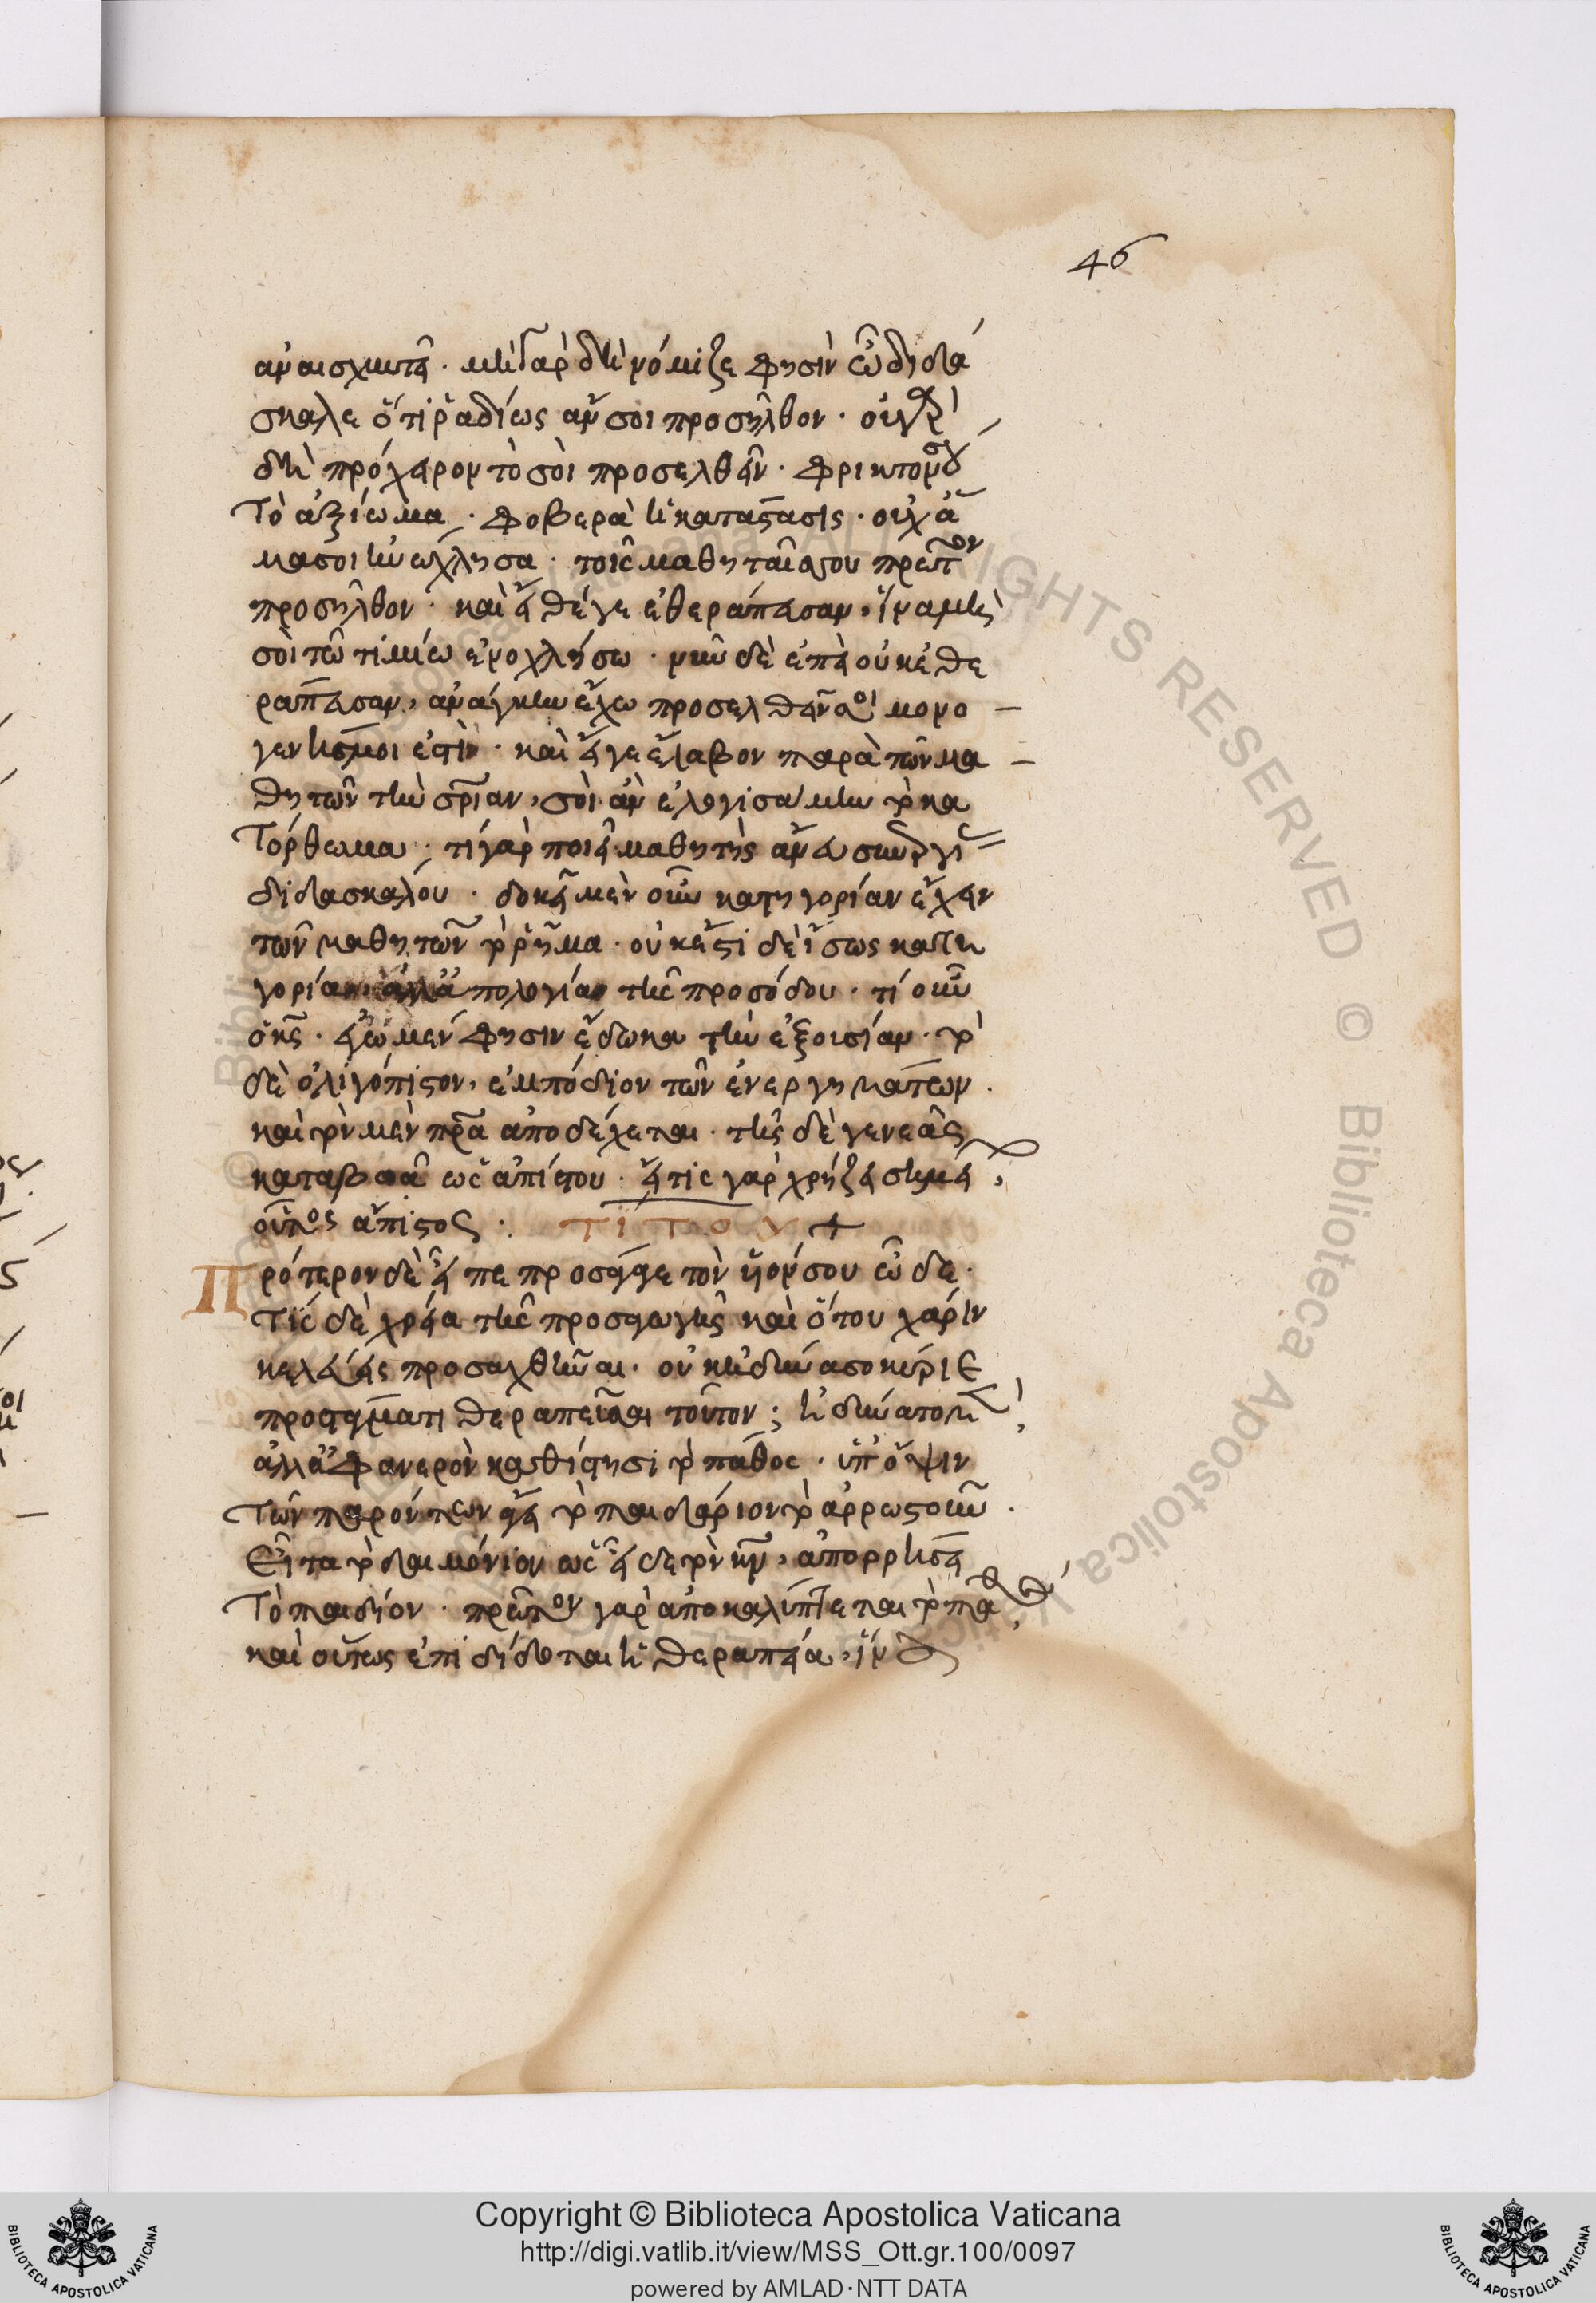 46
ἀναισχυντεῖ. μὴ γὰρ δὴ νόμιζε φησὶν ὦ διδά
σκαλε ὅτι ῥαδίως ἄν σοι προσῆλθον. οὐ γὰρ
δὴ πρόχειρον τὸ σοὶ προσελθεῖν. φρικτόν σου
τὸ ἀξίωμα. φοβερὰ ἡ κατάστασις. οὐχ ἅ
μα σοι ἠνώχλησα. τοῖς μαθηταῖς σου πρῶτον
προσῆλθον. καὶ εἴθέ γε ἐθεράπευσαν, ἵνα μὴ
σοὶ τῷ τιμίῳ ἐνοχλήσω. νῦν δὲ ἐπεὶ οὐκ ἐθε
ράπευσαν, ἀνάγκην ἔχω προσελθεῖν μονο
γενής μοι ἐστὶν. καὶ εἴγε ἔλαβον παρὰ τῶν μα
θητῶν τὴν σριαν, σοὶ ἂν ἐλογισάμην τὸ κα
τόρθωμα. τί γὰρ ποιεῖ μαθητὴς ἄνευ συνεργίας
διδασκάλου. δοκεῖ μὲν οὖν κατηγορίαν ἔχειν
τῶν μαθητῶν τὸ ῥῆμα. οὐκ ἔστι δὲ ἴσως κατη
γορία ἀλλ' ἀπολογία τῆς προσόδου. τί οὖν
ὁ κς. ἐγὼ μέν φησιν ἔδωκα τὴν ἐξουσίαν. τὸ
δὲ ὀλιγόπιστον, ἐμπόδιον τῶν ἐνεργημάτων.
καὶ τὸν μὲν πρα ἀποδέχεται. τῆς δὲ γενεᾶς
καταβοᾷ ὡς ἀπίστου. εἴ τις γὰρ χρήζει σημεί,
οὗτος ἄπιστος. ΤΙΤΟΥ +
Πρότερον δὲ εἶπε προσάγαγε τὸν υἱόν σου ὧδε.
τίς δὲ χρεία τῆς προσαγωγῆς καὶ ὅτου χάριν
κελεύεις προσαχθῆναι. οὐκ ἠδύνασο κύριε
προστάγματι θεραπεῦσαι τοῦτον; ἠδύνατο,
ἀλλὰ φανερὸν καθίστησι τὸ πάθος. ὑπ' ὄψιν
τῶν παρόντων ἄγει τὸ παιδάριον τὸ ἀρρωστοῦν.
εἶτα τὸ δαιμόνιον ὡς εἶδε τὸν κν, ἀπορρήσσει
τὸ παιδίον. πρῶτον γὰρ ἀποκαλύπτεται τὸ πάθος,
καὶ οὕτως ἐπιδίδοται ἡ θεραπεία, ἵνα
Copyright © Biblioteca Apostolica Vaticana
http://digi.vatlib.it/view/MSS_Ott.gr.100/0097
powered by AMLAD·NTT DATA